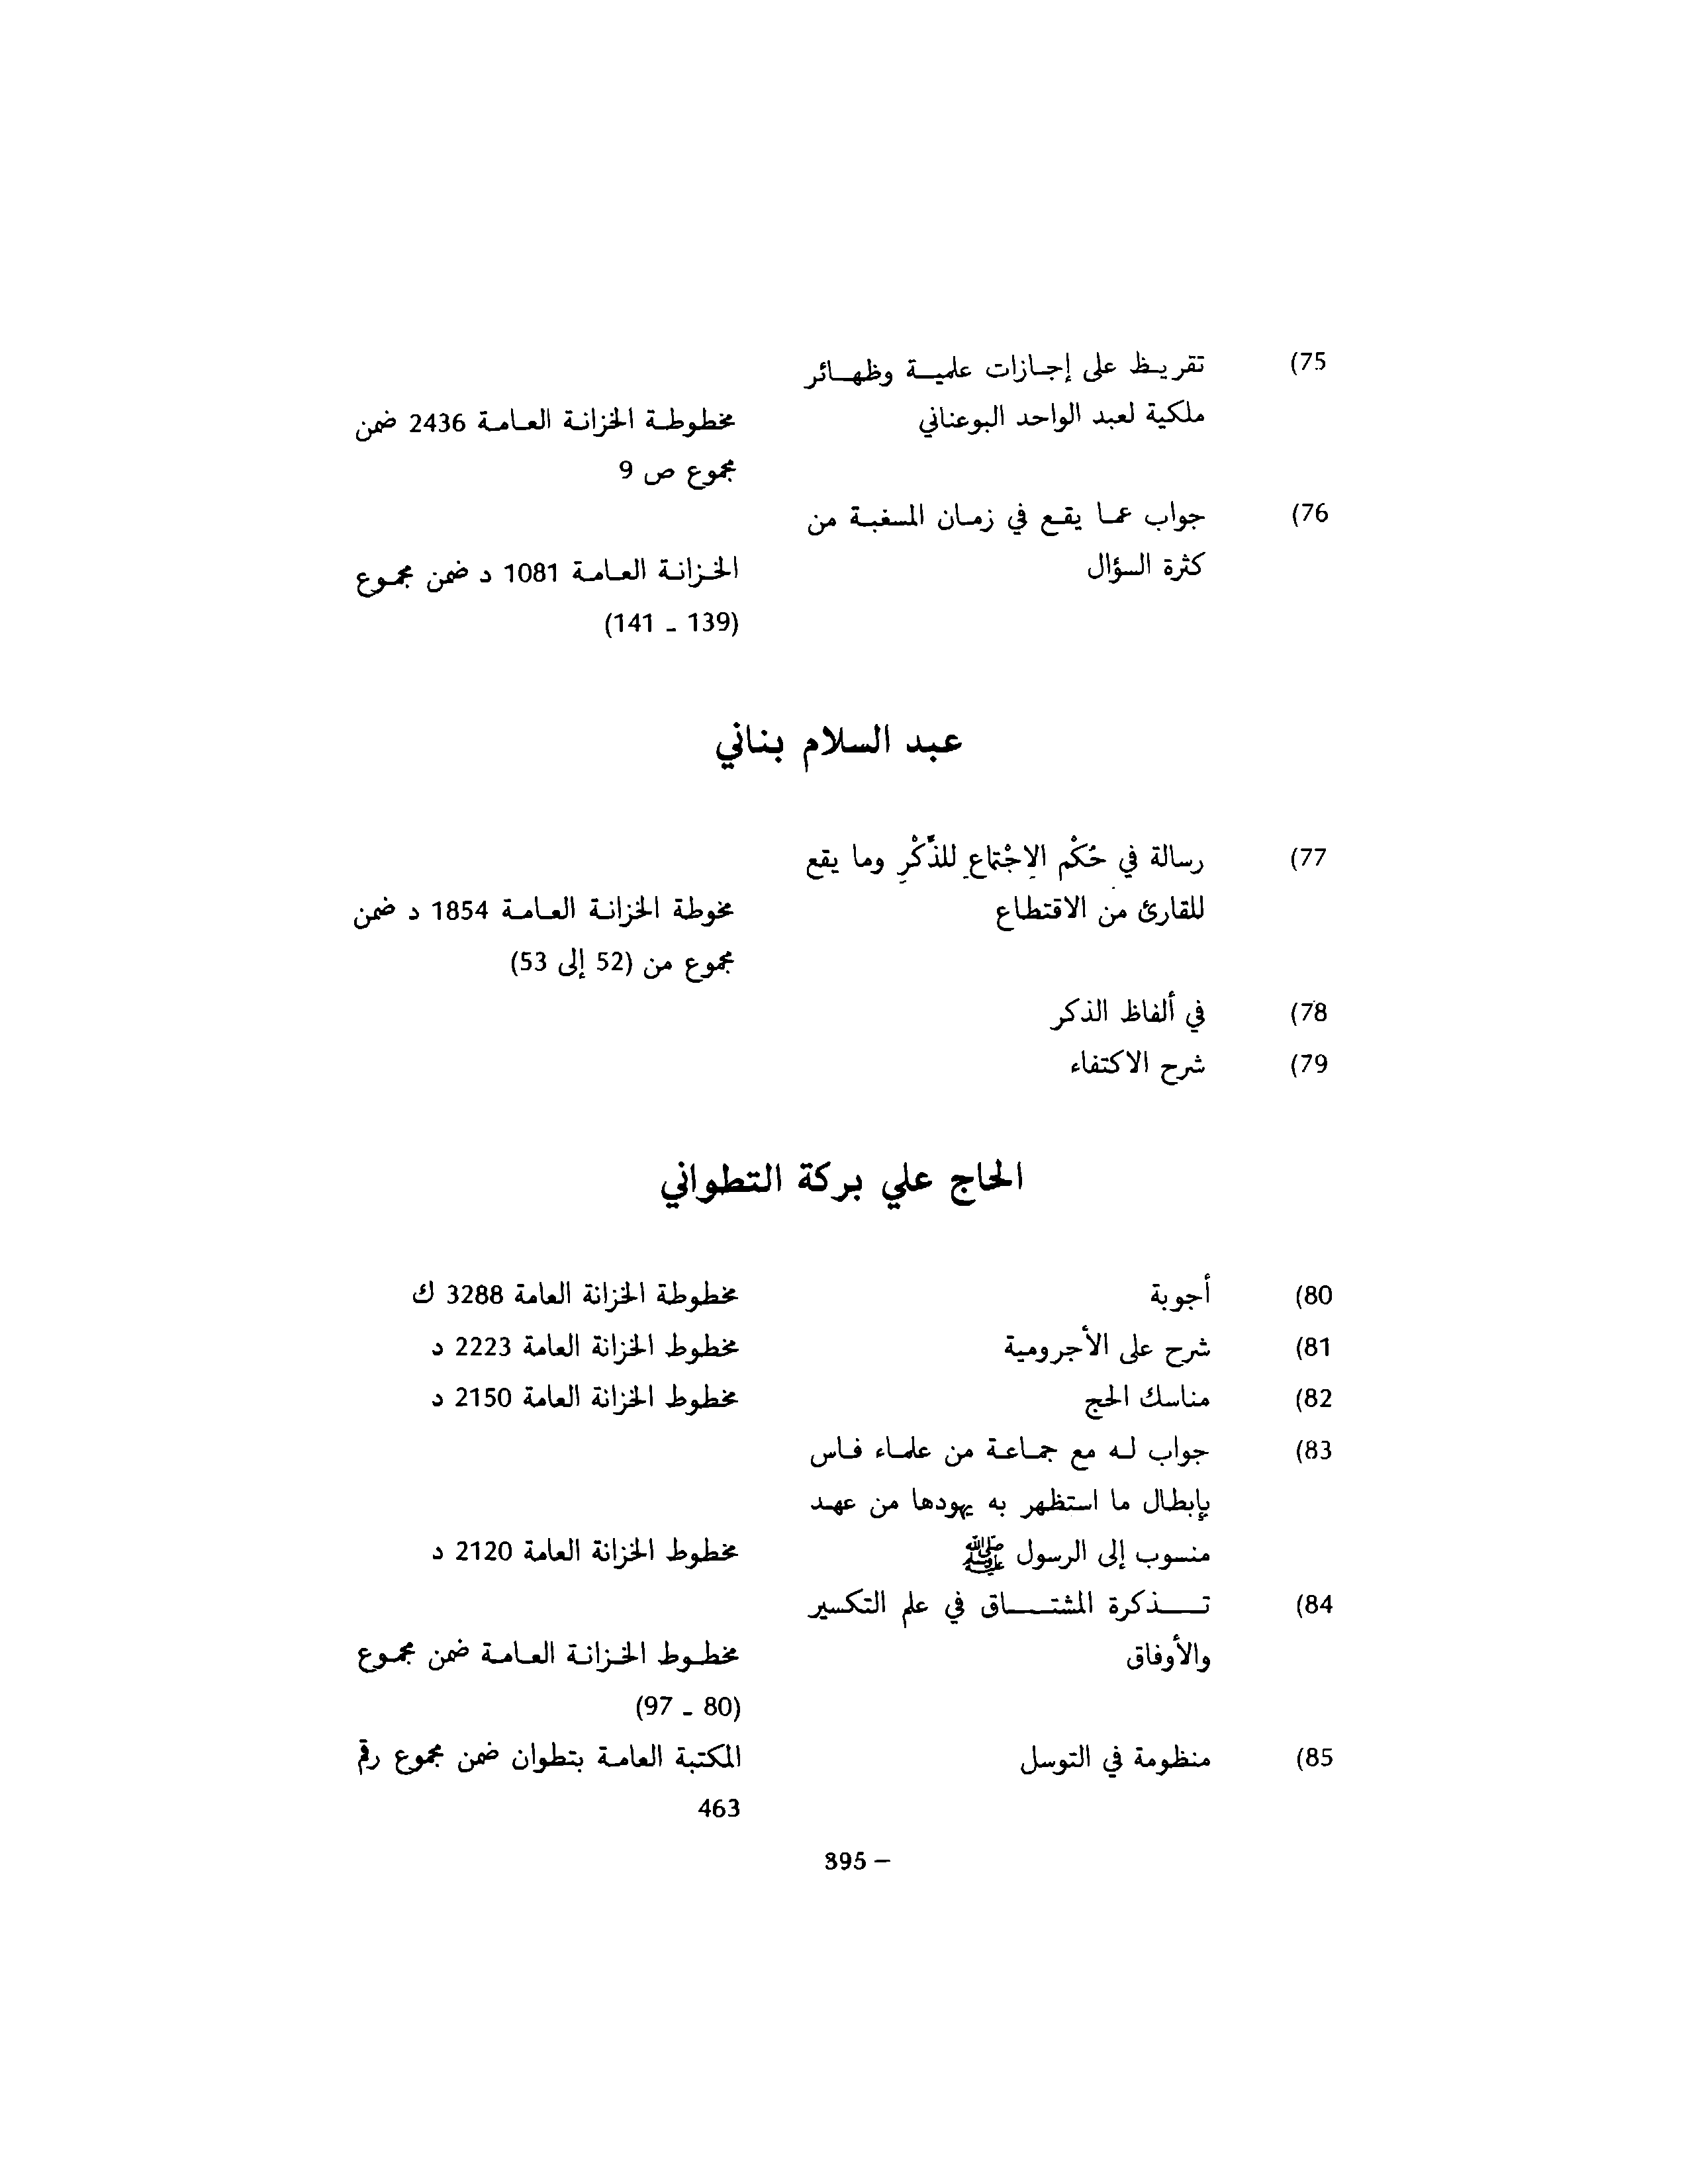 75) تقريظ على إجازات علمية وظهائر
ملكية لعبد الواحد البوعناني مخطوطة الخزانة العامة 2436 ضمن
مجموع ص 9
76) جواب عما يقع في زمان المسغبة من
كثرة السؤال الخزانة العامة 1081 د ضمن مجموع
(139 ـ 141)
عبد السلام بناني
77) رسالة في حُكْم الاِجْتماعِ للذِّكْرِ وما يقع
للقارئ من الاقتطاع مخوطة الخزانة العامة 1854 د ضمن
مجموع من (52 إلى 53)
78) في ألفاظ الذكر
79) شرح الاكتفاء
الحاج علي بركة التطواني
80) أجوبة مخطوطة الخزانة العامة 3288 ك
81) شرح على الأجرومية مخطوط الخزانة العامة 2223 د
82) مناسك الحج مخطوط الخزانة العامة 2150 د
83) جواب له مع جماعة من علماء فاس
بإبطال ما استظهر به يهودها من عهد
منسوب إلى الرسول ﷺ مخطوط الخزانة العامة 2120 د
84) تذكرة المشتاق في علم التكسير
والأوفاق مخطوط الخزانة العامة ضمن مجموع
(80 ـ 97)
85) منظومة في التوسل المكتبة العامة بتطوان ضمن مجموع رقم
463
– 395